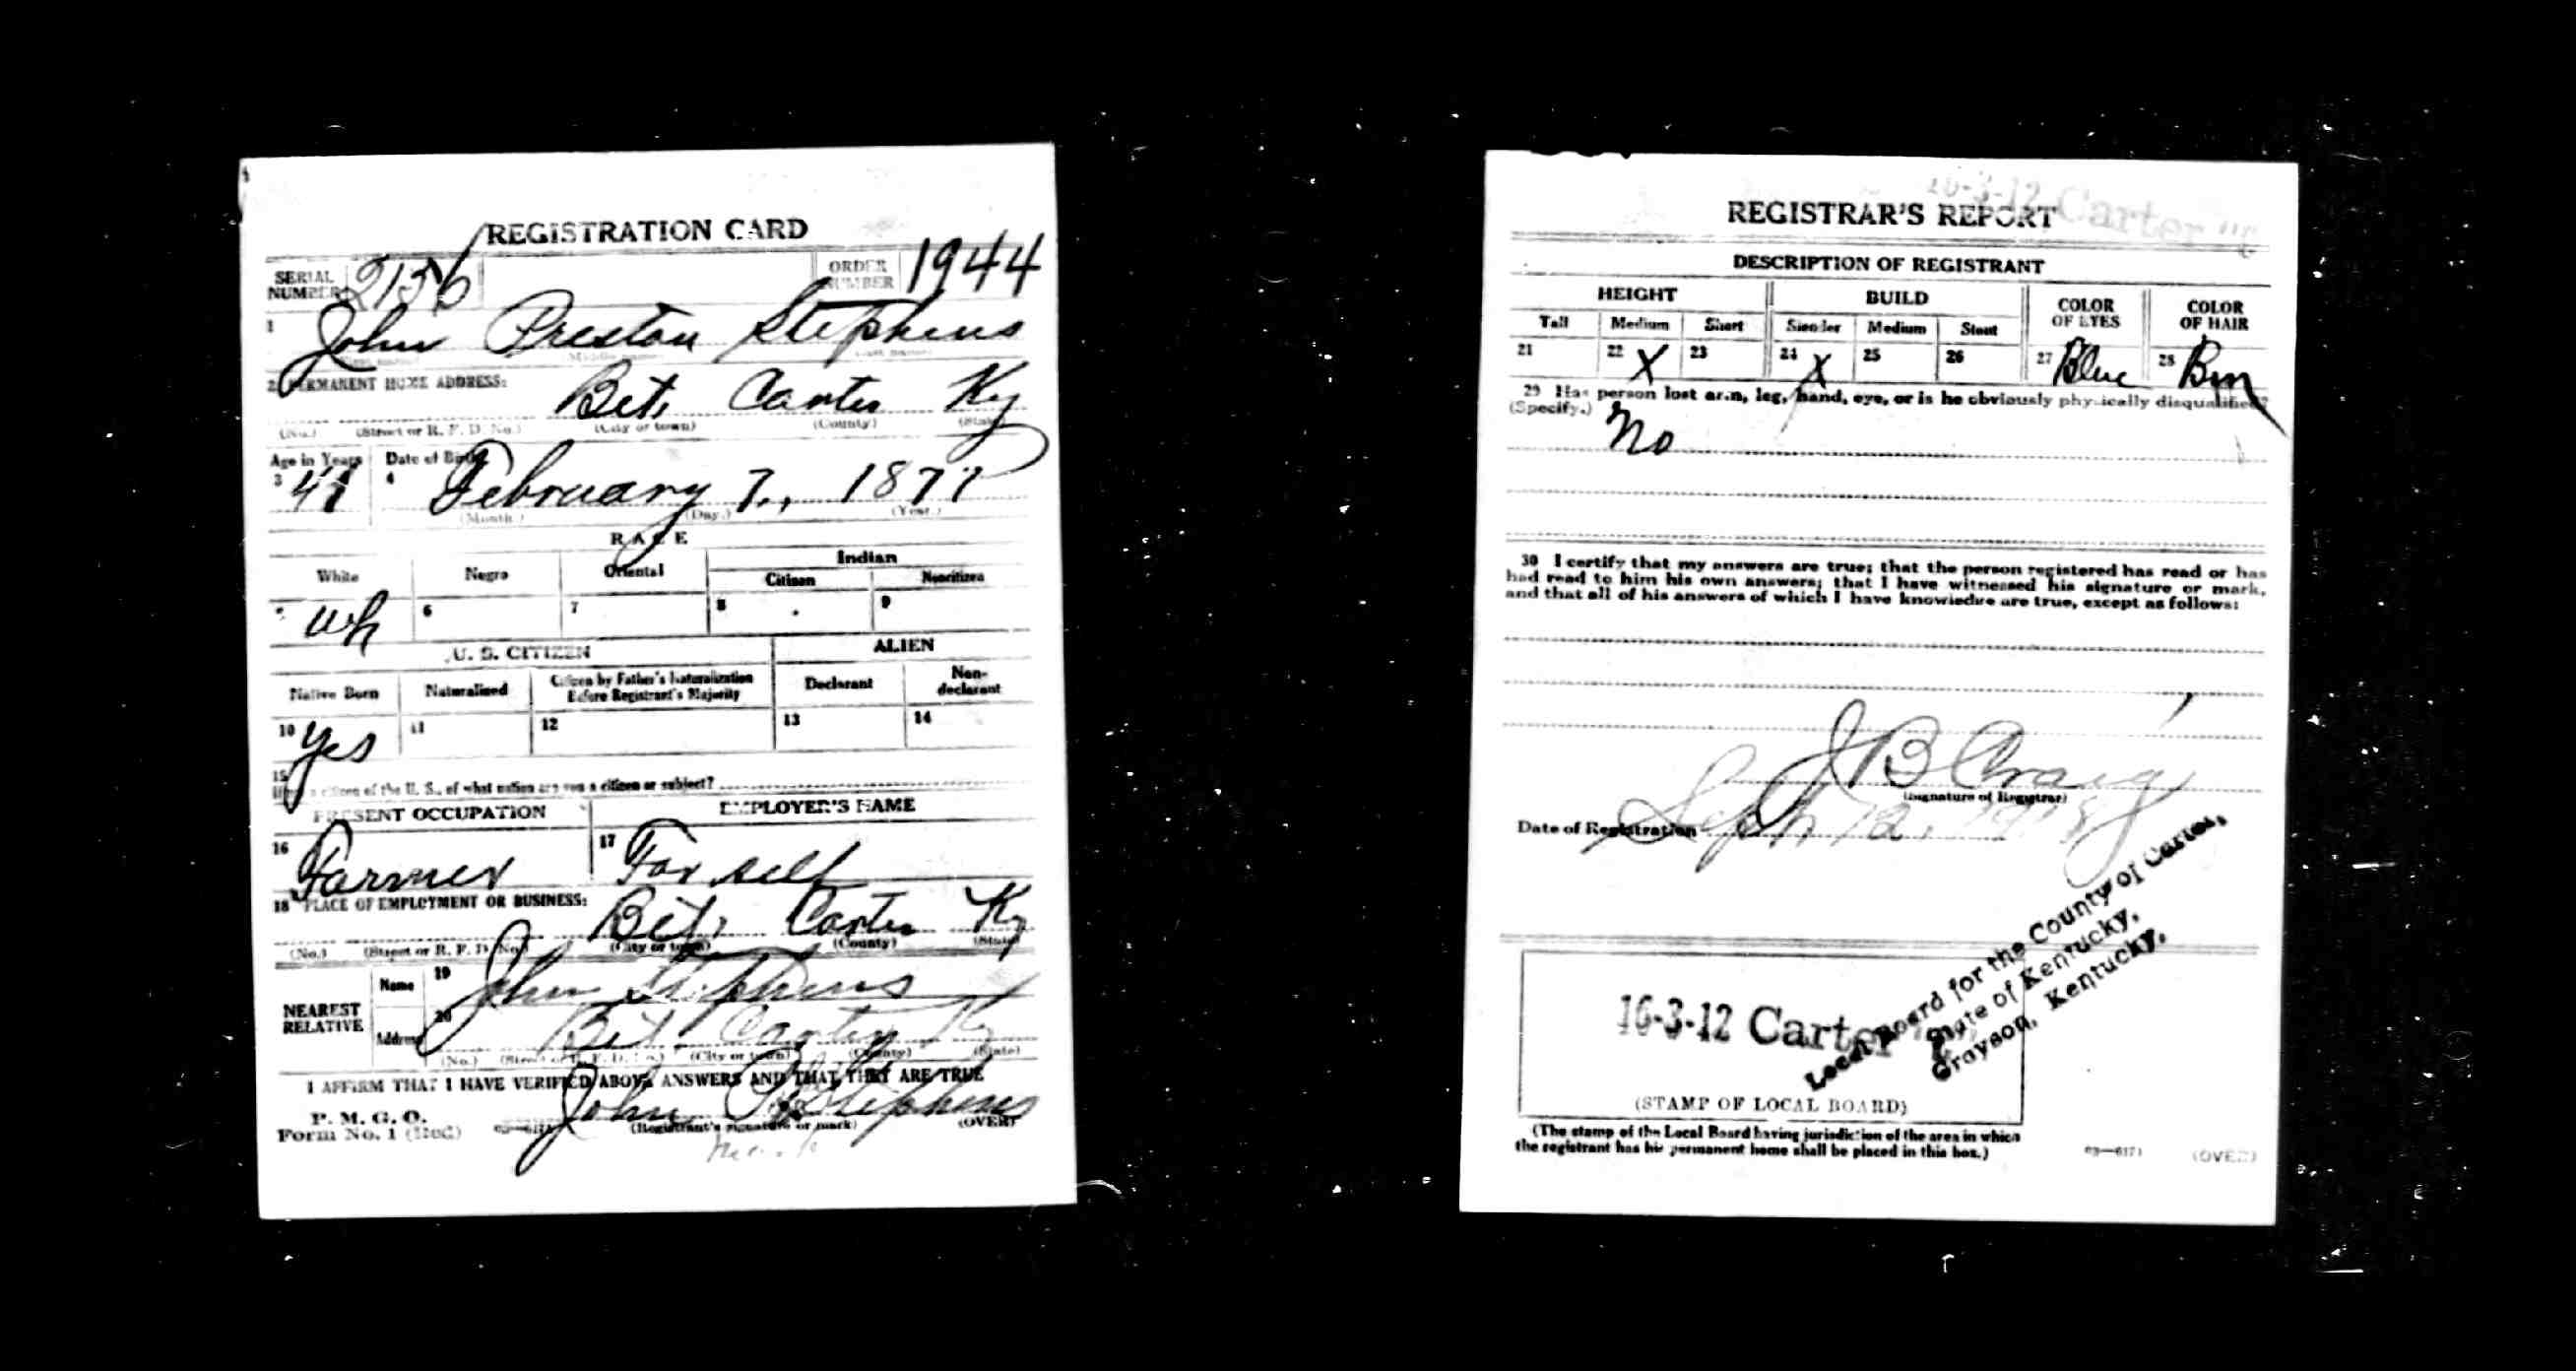 REGISTRATION CARD
SERIAL NUMBER 2156 ORDER NUMBER 1944
1 John Preston Stephens
(First name) (Middle name) (Last name)
2 PERMANENT HOME ADDRESS:
Bet, Carter Ky
(No.) (Street or R. F. D. No.) (City or town) (County) (State)
Age in Years Date of Birth
3 41 4 February 7, 1877
(Month.) (Day.) (Year.)
RACE
White Negro Oriental Indian
Citizen Noncitizen
5 Wh 6 7 8 9
U. S. CITIZEN ALIEN
Native Born Naturalized Citizen by Father's Naturalization Before Registrant's Majority Declarant Non-declarant
10 Yes 11 12 13 14
15
citizen of the U. S., of what nation are you a citizen or subject?
PRESENT OCCUPATION EMPLOYER'S NAME
16 Farmer 17 For self
18 PLACE OF EMPLOYMENT OR BUSINESS:
Bet, Carter Ky
(No.) (Street or R. F. D. No.) (City or town) (County) (State)
NEAREST RELATIVE Name 19 John Stephens
Address 20 Bet, Carter Ky
(No.) (Street or R. F. D. No.) (City or town) (County) (State)
I AFFIRM THAT I HAVE VERIFIED ABOVE ANSWERS AND THAT THEY ARE TRUE
P. M. G. O.
Form No. 1 (Red)
John P. Stephens
(Registrant's signature or mark) (OVER)
mark
16-3-12 Carter
REGISTRAR'S REPORT
DESCRIPTION OF REGISTRANT
HEIGHT BUILD COLOR OF EYES COLOR OF HAIR
Tall Medium Short Slender Medium Stout
21 22 X 23 24 X 25 26 27 Blue 28 Brn
29 Has person lost arm, leg, hand, eye, or is he obviously physically disqualified?
(Specify.) No
30 I certify that my answers are true; that the person registered has read or has
had read to him his own answers; that I have witnessed his signature or mark,
and that all of his answers of which I have knowledge are true, except as follows:
J B Craig
(Signature of Registrar)
Date of Registration Sept, 12, 1918
Local Board for the County of Carter,
State of Kentucky,
Grayson, Kentucky.
16-3-12 Carter
(STAMP OF LOCAL BOARD)
(The stamp of the Local Board having jurisdiction of the area in which
the registrant has his permanent home shall be placed in this box.)
03—6171 (OVER)